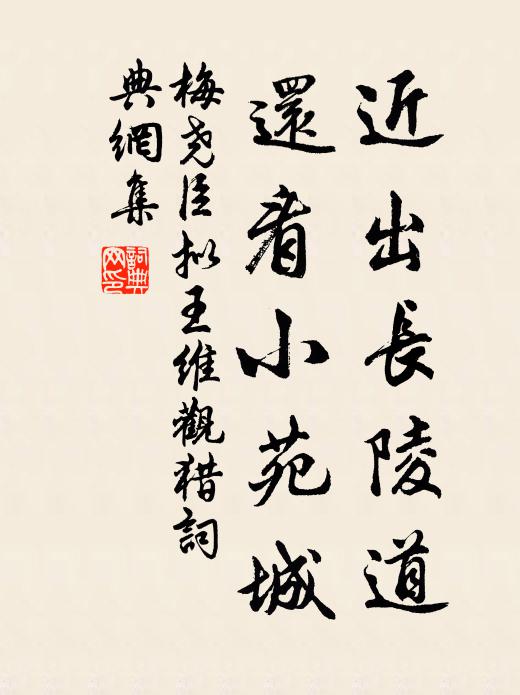 近出長陵道
還看小苑城
梅堯臣拟王維觀猎詞
典網集
詞典
网印